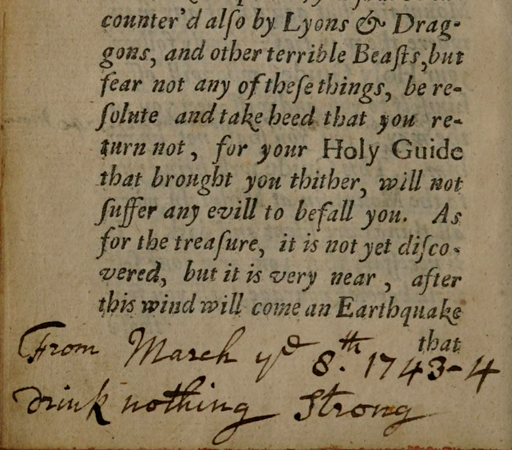 counter'd alſo by Lyons & Drag-
gons, and other terrible Beaſts, but
fear not any of theſe things, be re-
ſolute and take heed that you re-
turn not, for your Holy Guide
that brought you thither, will not
ſuffer any evill to befall you. As
for the treaſure, it is not yet diſco-
vered, but it is very near, after
this wind will come an Earthquake
that
From March yᵉ 8.th 1743-4
drink nothing Strong